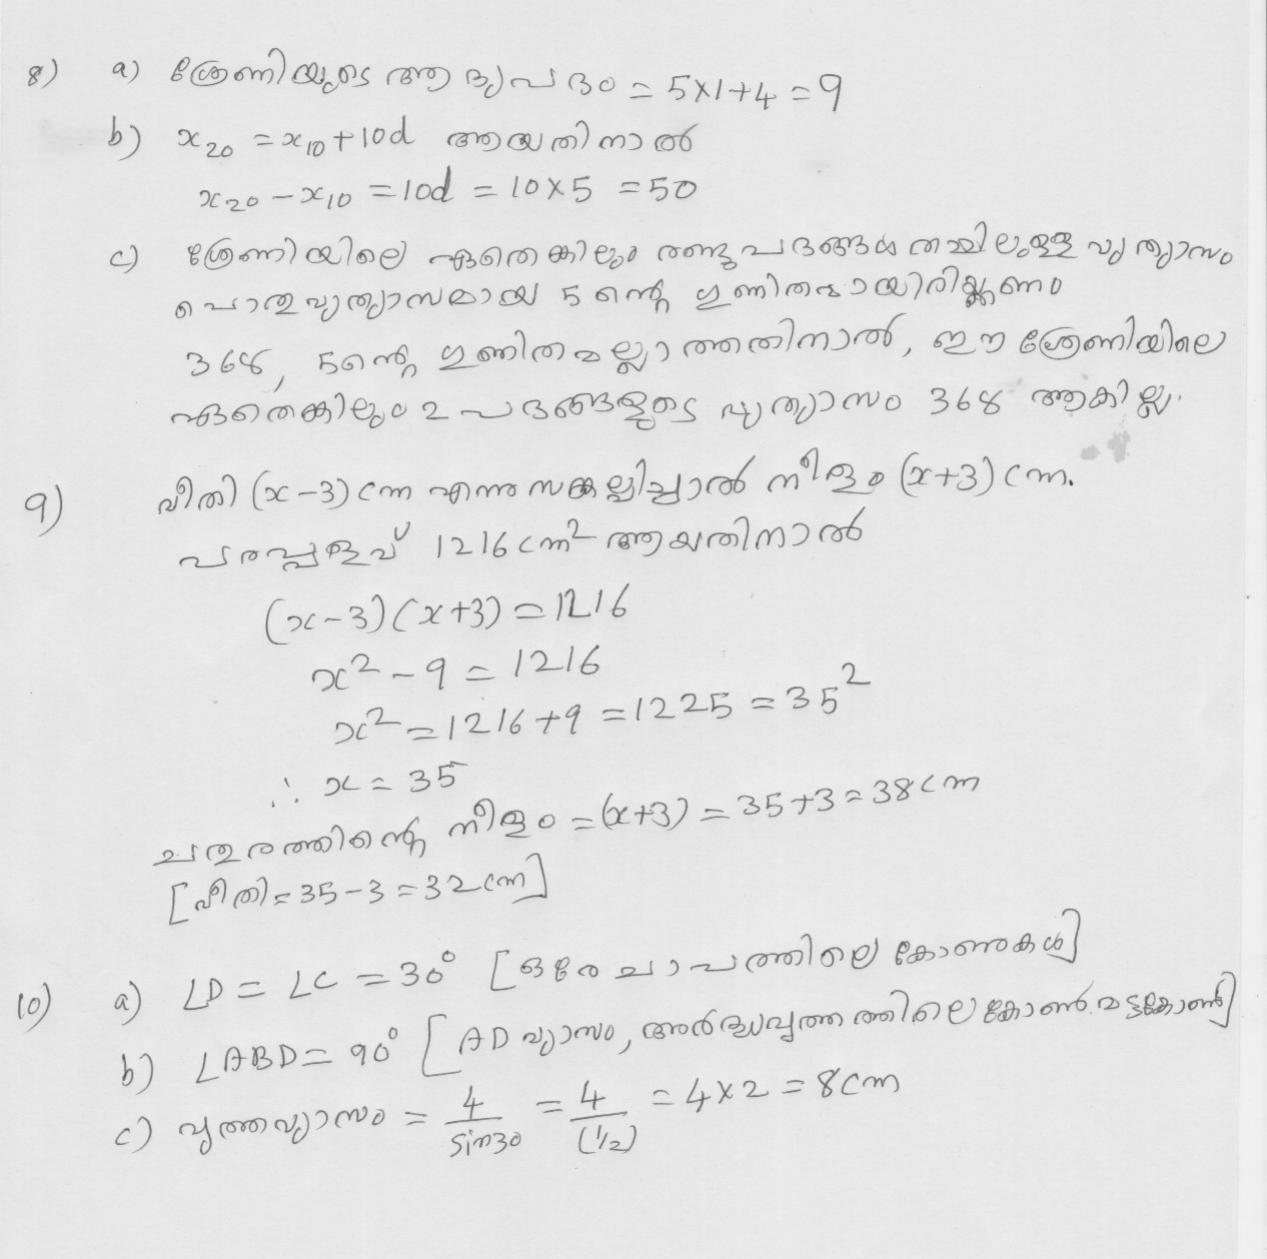 8) a) ശ്രേണിയുടെ ആദ്യപദം = 5×1+4 = 9
b) x₂₀ = x₁₀ + 10d ആയതിനാൽ
x₂₀ − x₁₀ = 10d = 10×5 = 50
c) ശ്രേണിയിലെ ഏതെങ്കിലും രണ്ടു പദങ്ങൾ തമ്മിലുള്ള വ്യത്യാസം
പൊതുവ്യത്യാസമായ 5 ന്റെ ഗുണിതമായിരിക്കണം
368, 5ന്റെ ഗുണിതമല്ലാത്തതിനാൽ, ഈ ശ്രേണിയിലെ
ഏതെങ്കിലും 2 പദങ്ങളുടെ വ്യത്യാസം 368 ആകില്ല.
9) വീതി (x−3) cm എന്നു സങ്കല്പിച്ചാൽ നീളം (x+3) cm.
പരപ്പളവ് 1216 cm² ആയതിനാൽ
(x−3)(x+3) = 1216
x² − 9 = 1216
x² = 1216 + 9 = 1225 = 35²
∴ x = 35
ചതുരത്തിന്റെ നീളം = (x+3) = 35+3 = 38 cm
[വീതി = 35−3 = 32 cm]
10) a) ∠D = ∠C = 30° [ഒരേ ചാപത്തിലെ കോണുകൾ]
b) ∠ABD = 90° [AD വ്യാസം, അർദ്ധവൃത്തത്തിലെ കോൺ മട്ടകോൺ]
c) വൃത്തവ്യാസം = 4/sin30 = 4/(1/2) = 4×2 = 8cm